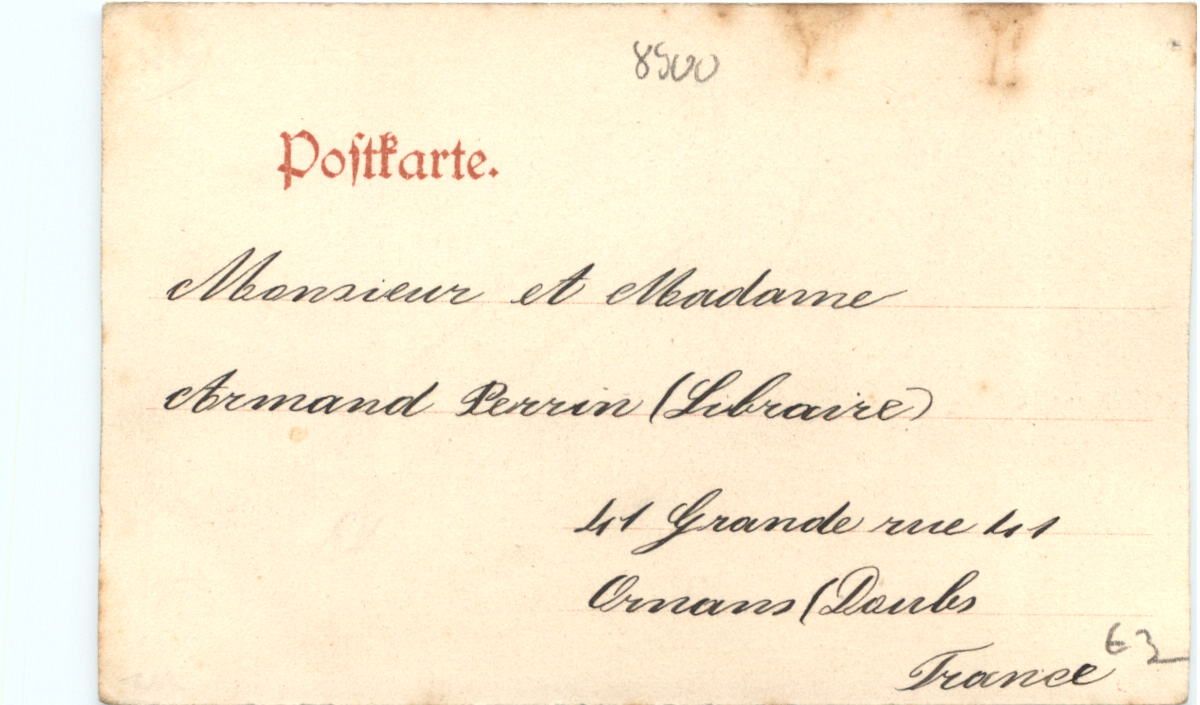 8500
Poſtkarte.
Monsieur et Madame
Armand Perrin (Libraire)
41 Grande rue 41
Ornans (Doubs
France